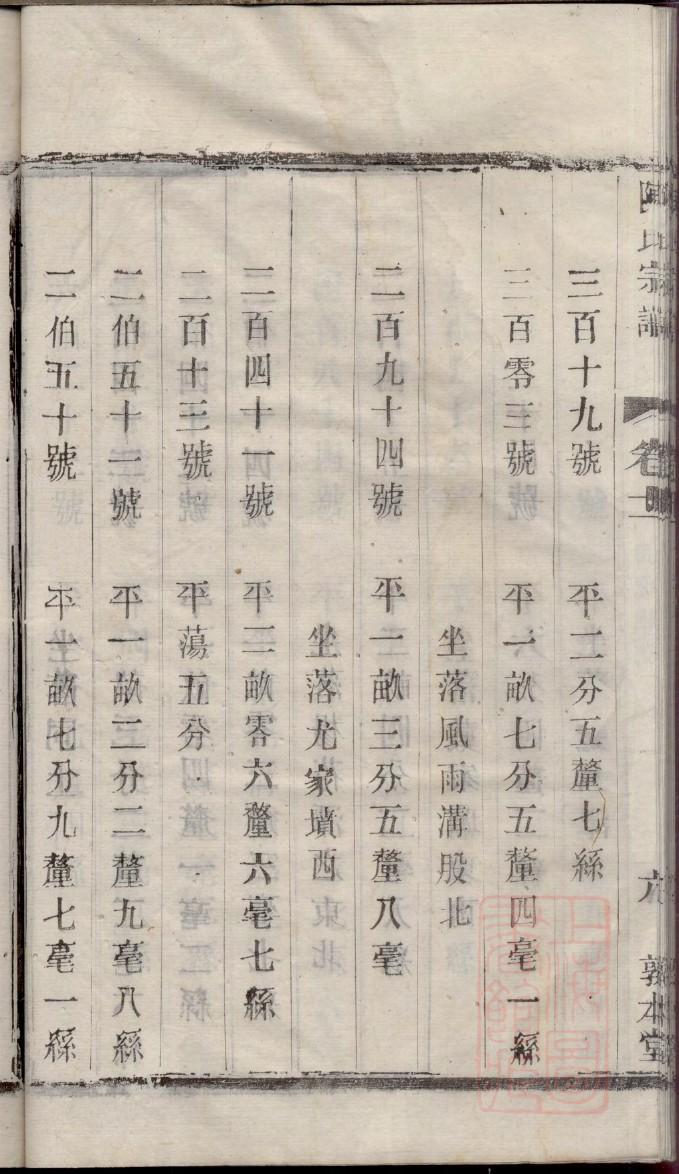 陳氏宗譜 卷 六 敦本堂
三百十九號 平二分五釐七絲
三百零三號 平一畝七分五釐四毫一絲
坐落風雨溝股北
二百九十四號 平一畝三分五釐八毫
坐落尤家墳西
二百四十一號 平二畝零六釐六毫七絲
二百十三號 平蕩五分
二伯五十一號 平一畝二分二釐九毫八絲
二伯五十號 平一畝七分九釐七毫一絲